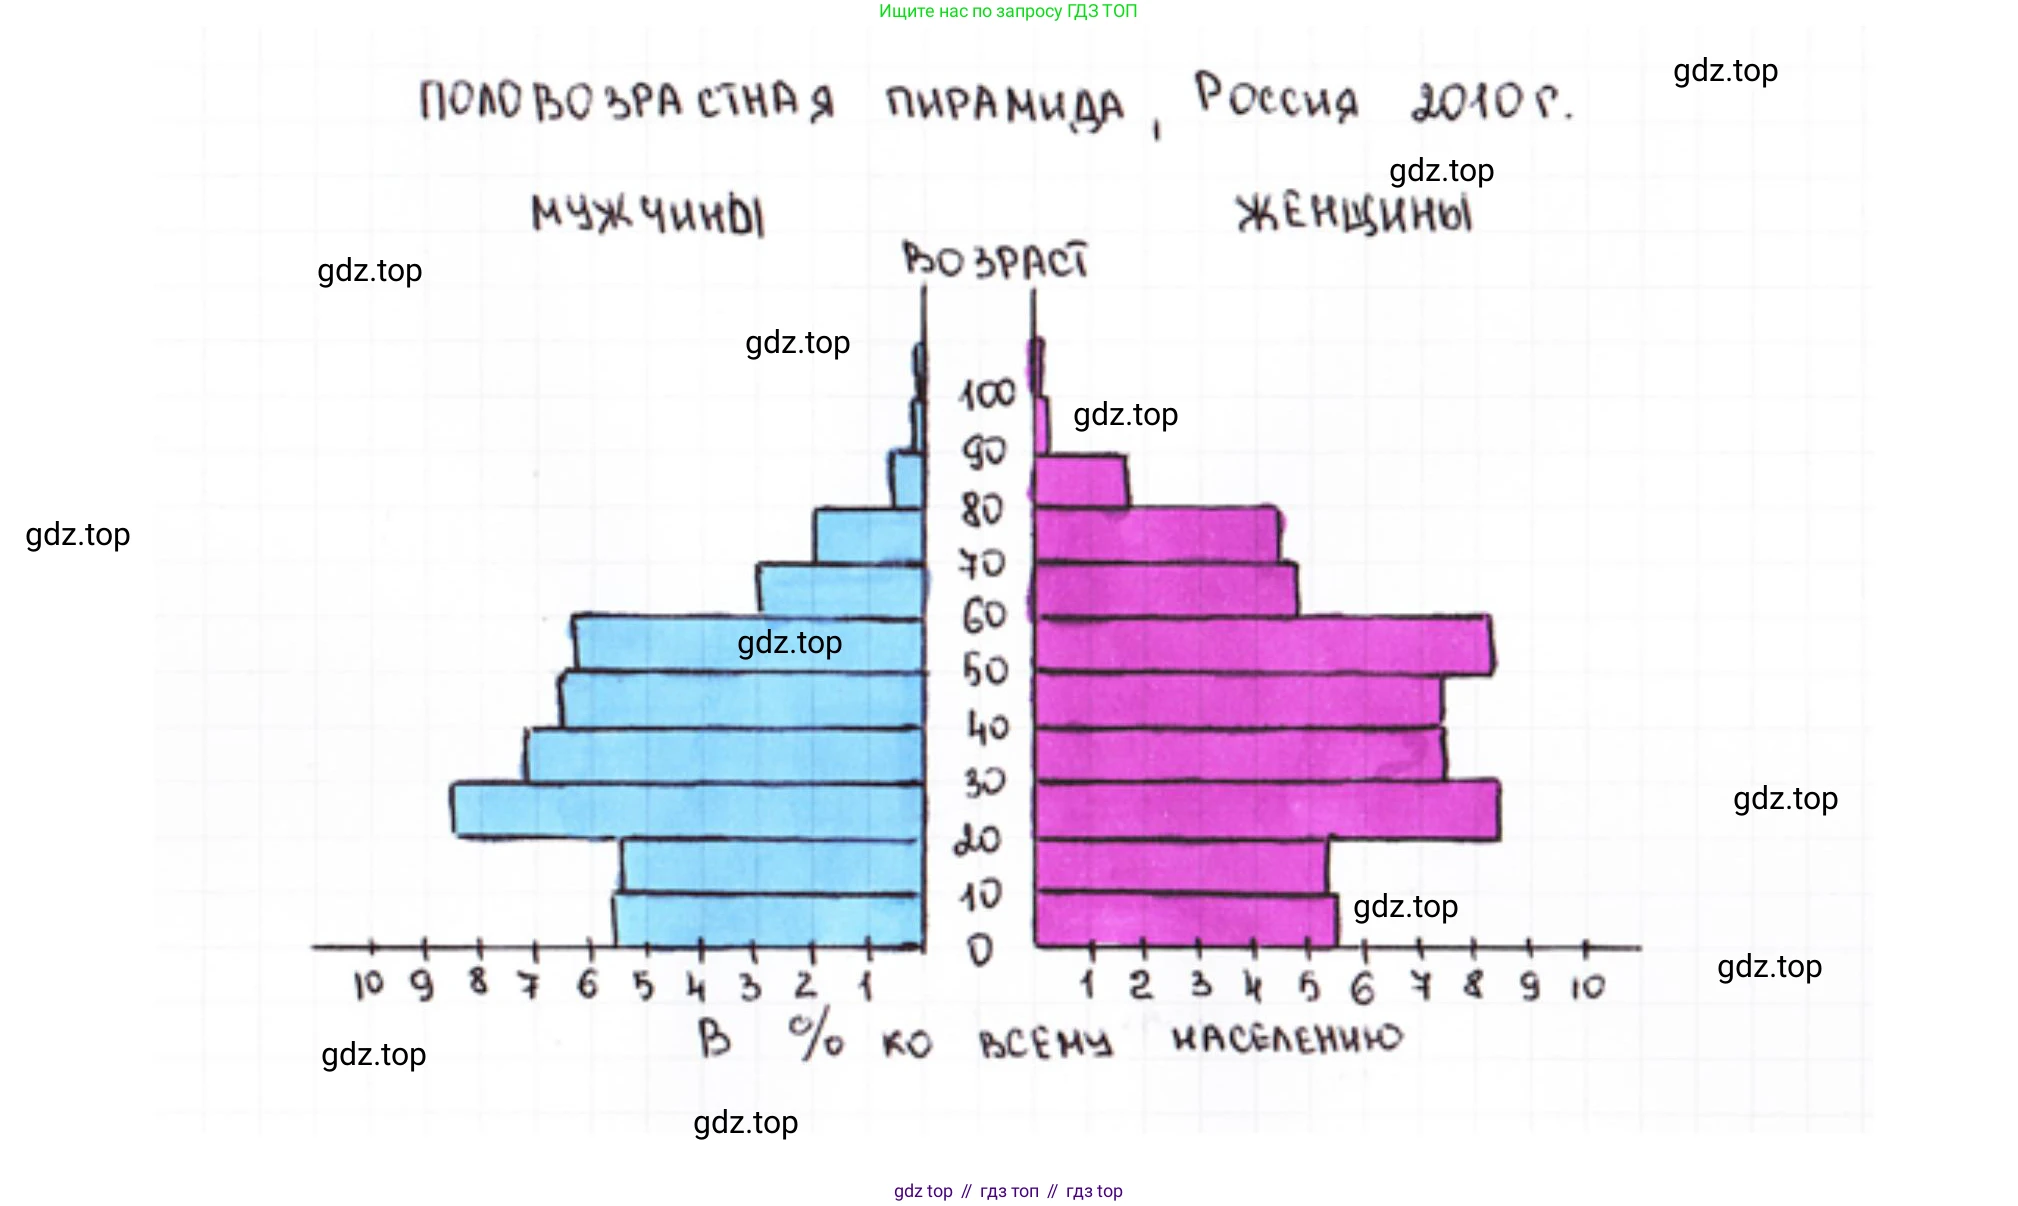 Ищите нас по запросу ГДЗ ТОП
gdz.top
ПОЛОВОЗРАСТНАЯ ПИРАМИДА, РОССИЯ 2010 г.
gdz.top
МУЖЧИНЫ ЖЕНЩИНЫ
ВОЗРАСТ
gdz.top
gdz.top
100
gdz.top
90
80
gdz.top
70
60
gdz.top
50
40
30
gdz.top
20
10
gdz.top
0
gdz.top
10 9 8 7 6 5 4 3 2 1 1 2 3 4 5 6 7 8 9 10
В % КО ВСЕМУ НАСЕЛЕНИЮ
gdz.top
gdz.top
gdz top // гдз топ // гдз top